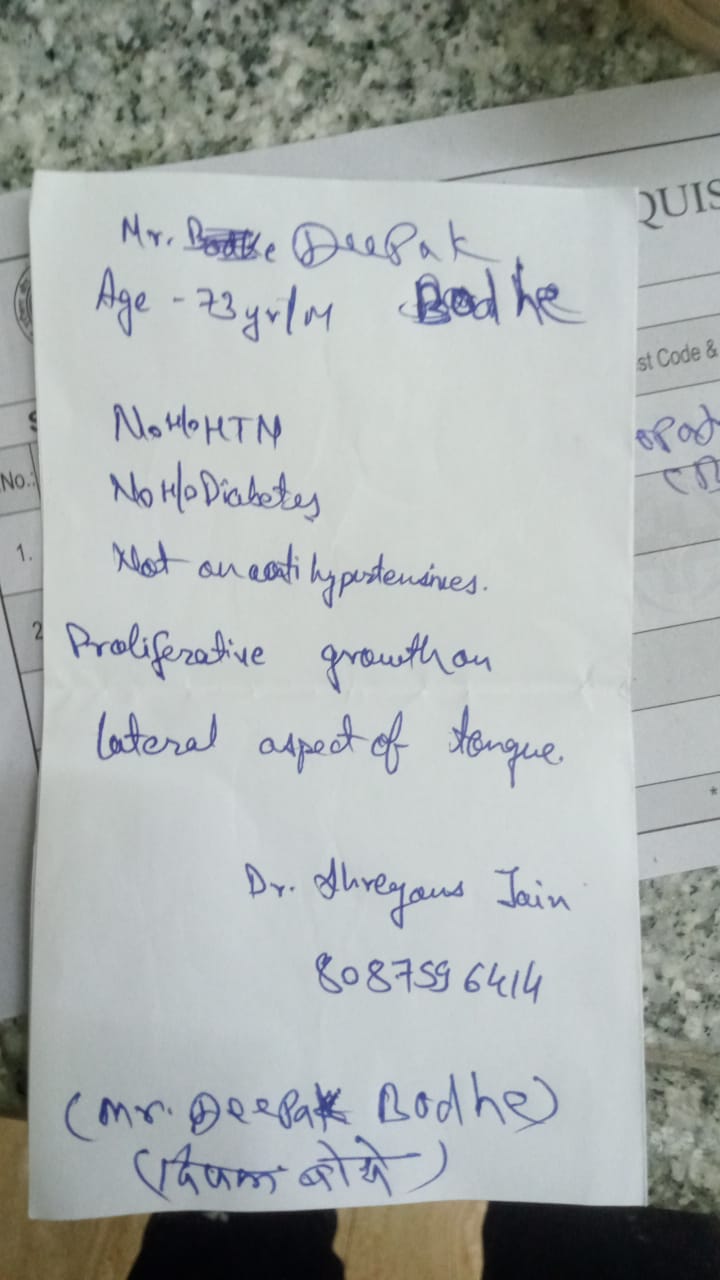 Mr. Deepak
Bodhe
Age - 73 yr/M
No H/o HTN
No H/o Diabetes
Not on antihypertensives.
Proliferative growth on
lateral aspect of tongue.
Dr. Shreyans Jain
8087596414
(Mr. Deepak Bodhe)
(दिपक बोधे)
QUIS
st Code &
No.:
1.
2
*